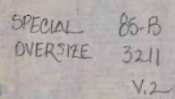 SPECIAL 85-B
OVERSIZE 3211
V.2